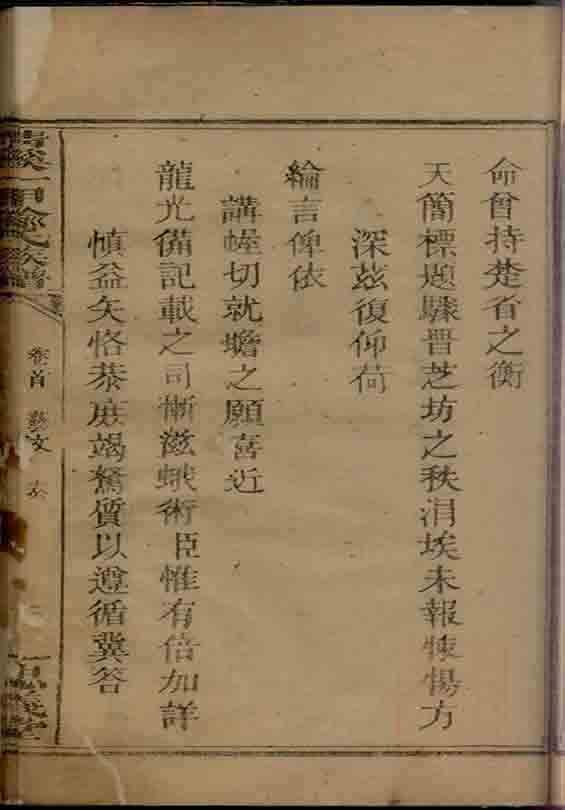 命曾持楚省之衡
天簡標題驟晋芝坊之秩涓埃未報悚惕方
深茲復仰荷
綸言俾依
講幄切就瞻之願喜近
龍光備記載之司慚滋蛾術臣惟有倍加詳
慎益矢恪恭庶竭駑質以遵循冀答
族譜
卷首 藝文